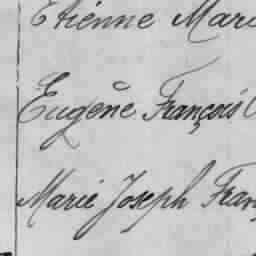 Etienne Mari
Eugène François
Marie Joseph Fran